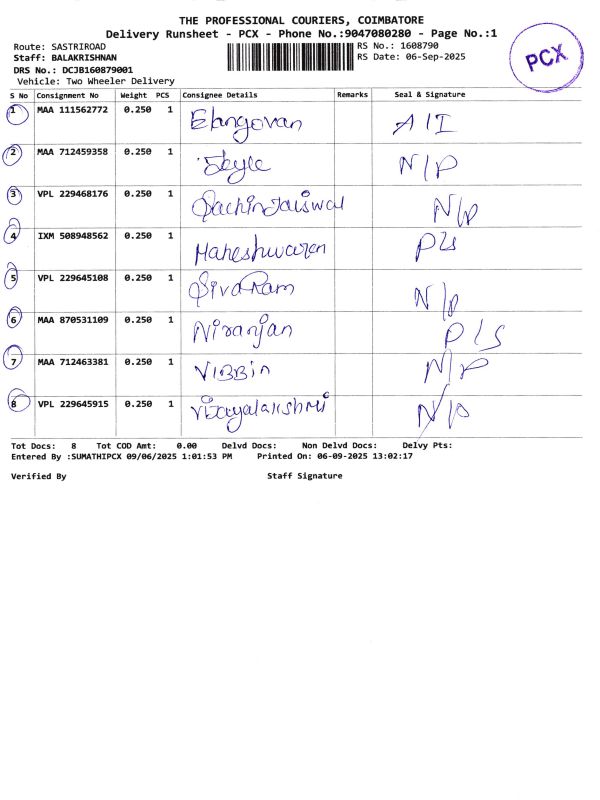 THE PROFESSIONAL COURIERS, COIMBATORE
Delivery Runsheet - PCX - Phone No.:9047080280 - Page No.:1
Route: SASTRIROAD RS No.: 1608790
Staff: BALAKRISHNAN RS Date: 06-Sep-2025
DRS No.: DCJB160879001
Vehicle: Two Wheeler Delivery
PCX
S No Consignment No Weight PCS Consignee Details Remarks Seal & Signature
1 MAA 111562772 0.250 1 Elangovan A1I
2 MAA 712459358 0.250 1 N/P
3 VPL 229468176 0.250 1 Sachin Jaiswal N/P
4 IXM 508948562 0.250 1 Maheshwaren PLS
5 VPL 229645108 0.250 1 SivaRam N/P
6 MAA 870531109 0.250 1 Niranjan PLS
7 MAA 712463381 0.250 1 ViBBin N/P
8 VPL 229645915 0.250 1 Vijayalakshmi N/P
Tot Docs: 8 Tot COD Amt: 0.00 Delvd Docs: Non Delvd Docs: Delvy Pts:
Entered By :SUMATHIPCX 09/06/2025 1:01:53 PM Printed On: 06-09-2025 13:02:17
Verified By Staff Signature